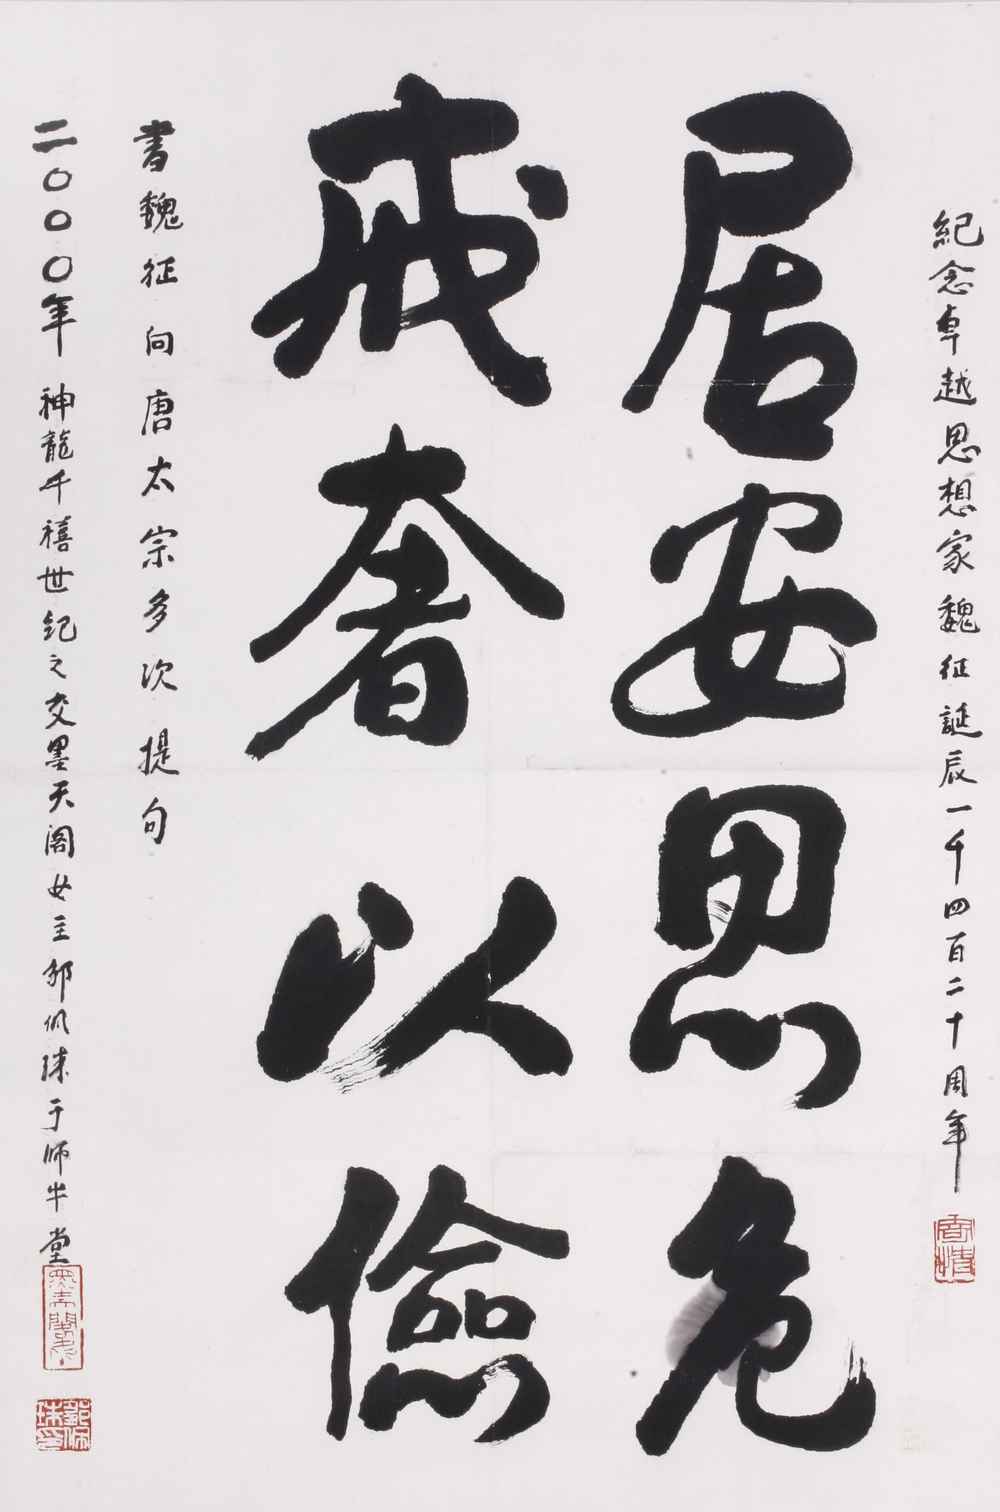 紀念卓越思想家魏征誕辰一千四百二十周年
居安思危
戒奢以儉
書魏征向唐太宗多次提句
二〇〇〇年神龍千禧世紀之交墨天阁女主邹佩珠于师牛堂